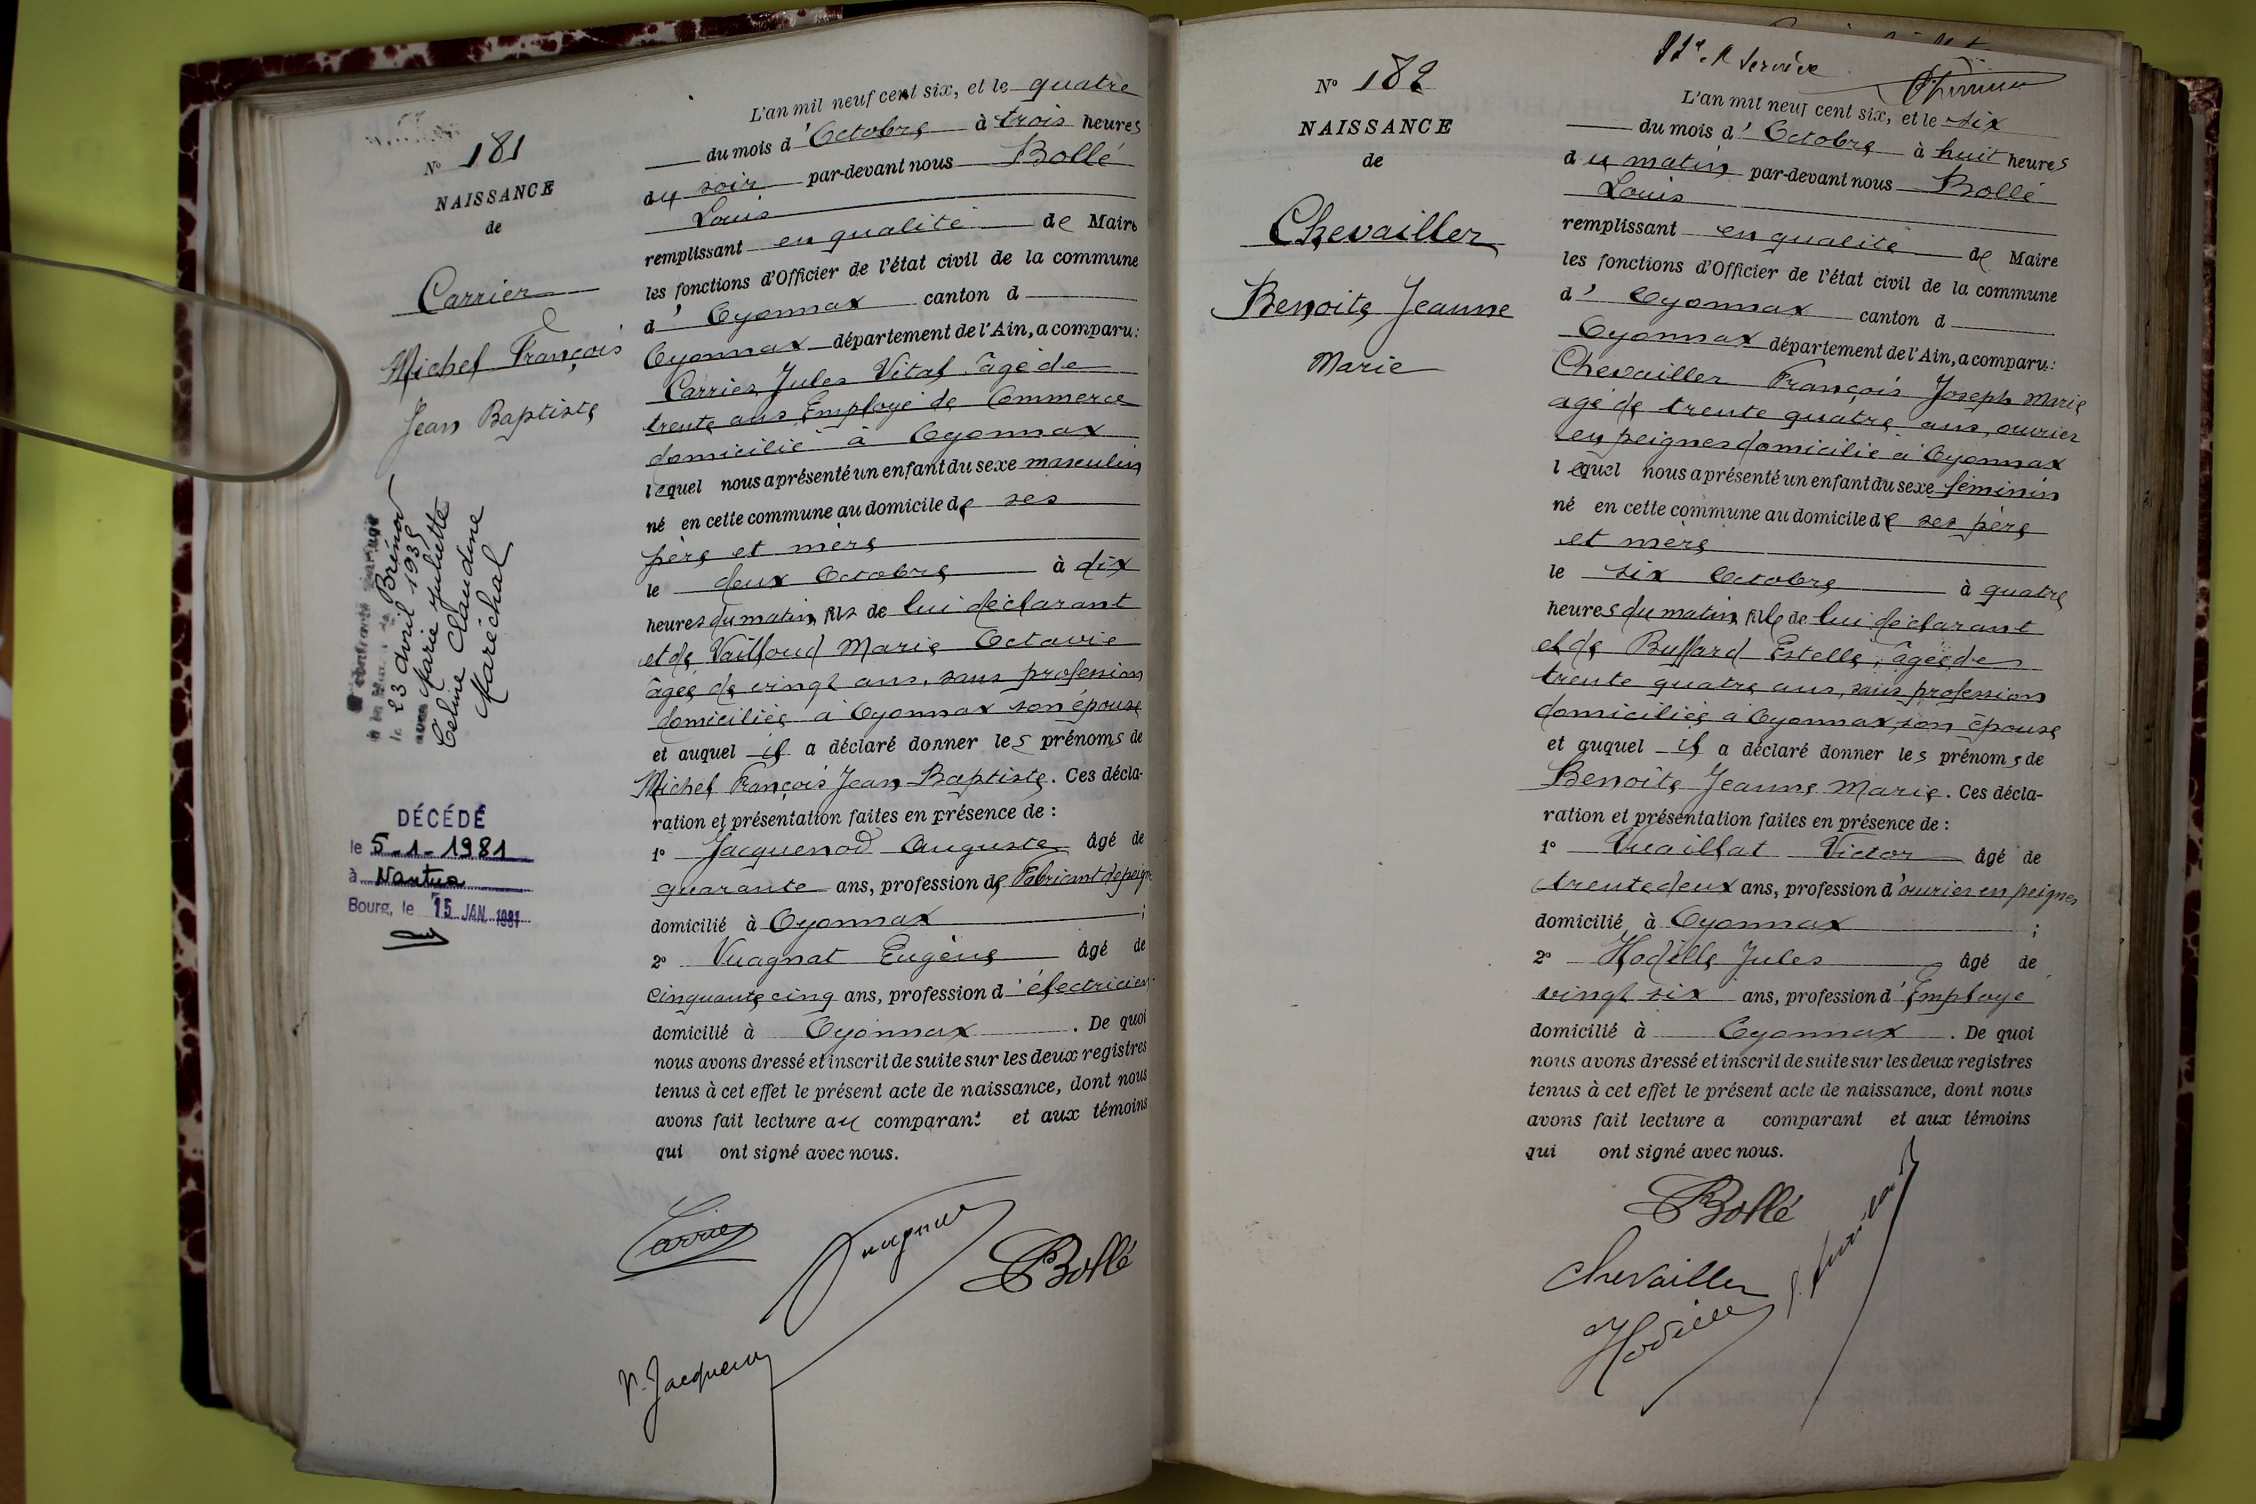 N° 181
NAISSANCE
de
Carrier
Michel François
Jean Baptiste
Brénod
le 23 avril 1935
avec Marie Juliette
Céline Claudine
Maréchal
DÉCÉDÉ
le 5-1-1981
à Nantua
Bourg, le 15 JAN. 1981
L'an mil neuf cent six, et le quatre
du mois d'Octobre à trois heures
du soir par-devant nous Bollé
Louis
remplissant en qualité de Maire
les fonctions d'Officier de l'état civil de la commune
d'Oyonnax canton d
Oyonnax département de l'Ain, a comparu:
Carrier Jules Vital âgé de
trente ans Employé de Commerce
domicilié à Oyonnax
lequel nous a présenté un enfant du sexe masculin
né en cette commune au domicile de ses
père et mère
le deux Octobre à dix
heures du matin, fils de lui déclarant
et de Vailloud Marie Octavie
âgée de vingt ans, sans profession
domiciliée à Oyonnax son épouse
et auquel il a déclaré donner les prénoms de
Michel François Jean Baptiste. Ces décla-
ration et présentation faites en présence de :
1° Jacquenod Auguste âgé de
quarante ans, profession de Fabricant de peignes
domicilié à Oyonnax ;
2° Vuagnat Eugène âgé de
cinquante cinq ans, profession d'électricien
domicilié à Oyonnax. De quoi
nous avons dressé et inscrit de suite sur les deux registres
tenus à cet effet le présent acte de naissance, dont nous
avons fait lecture au comparant et aux témoins
qui ont signé avec nous.
Carrier
Vuagnat
Bollé
Jacquenod
N° 182
NAISSANCE
de
Chevailler
Benoite Jeanne
Marie
L'an mil neuf cent six, et le six
du mois d'Octobre à huit heures
du matin par-devant nous Bollé
Louis
remplissant en qualité de Maire
les fonctions d'Officier de l'état civil de la commune
d'Oyonnax canton d
Oyonnax département de l'Ain, a comparu:
Chevailler François Joseph Marie
âgé de trente quatre ans, ouvrier
en peignes domicilié à Oyonnax
lequel nous a présenté un enfant du sexe féminin
né en cette commune au domicile de ses père
et mère
le six Octobre à quatre
heures du matin, fille de lui déclarant
et de Buffard Estelle, âgée de
trente quatre ans, sans profession
domiciliée à Oyonnax, son épouse
et auquel il a déclaré donner les prénoms de
Benoîte Jeanne Marie. Ces décla-
ration et présentation faites en présence de :
1° Vuaillat Victor âgé de
trente deux ans, profession d'ouvrier en peignes
domicilié à Oyonnax ;
2° Hodille Jules âgé de
vingt six ans, profession d'Employé
domicilié à Oyonnax. De quoi
nous avons dressé et inscrit de suite sur les deux registres
tenus à cet effet le présent acte de naissance, dont nous
avons fait lecture a comparant et aux témoins
qui ont signé avec nous.
Bollé
Chevailler
Hodille